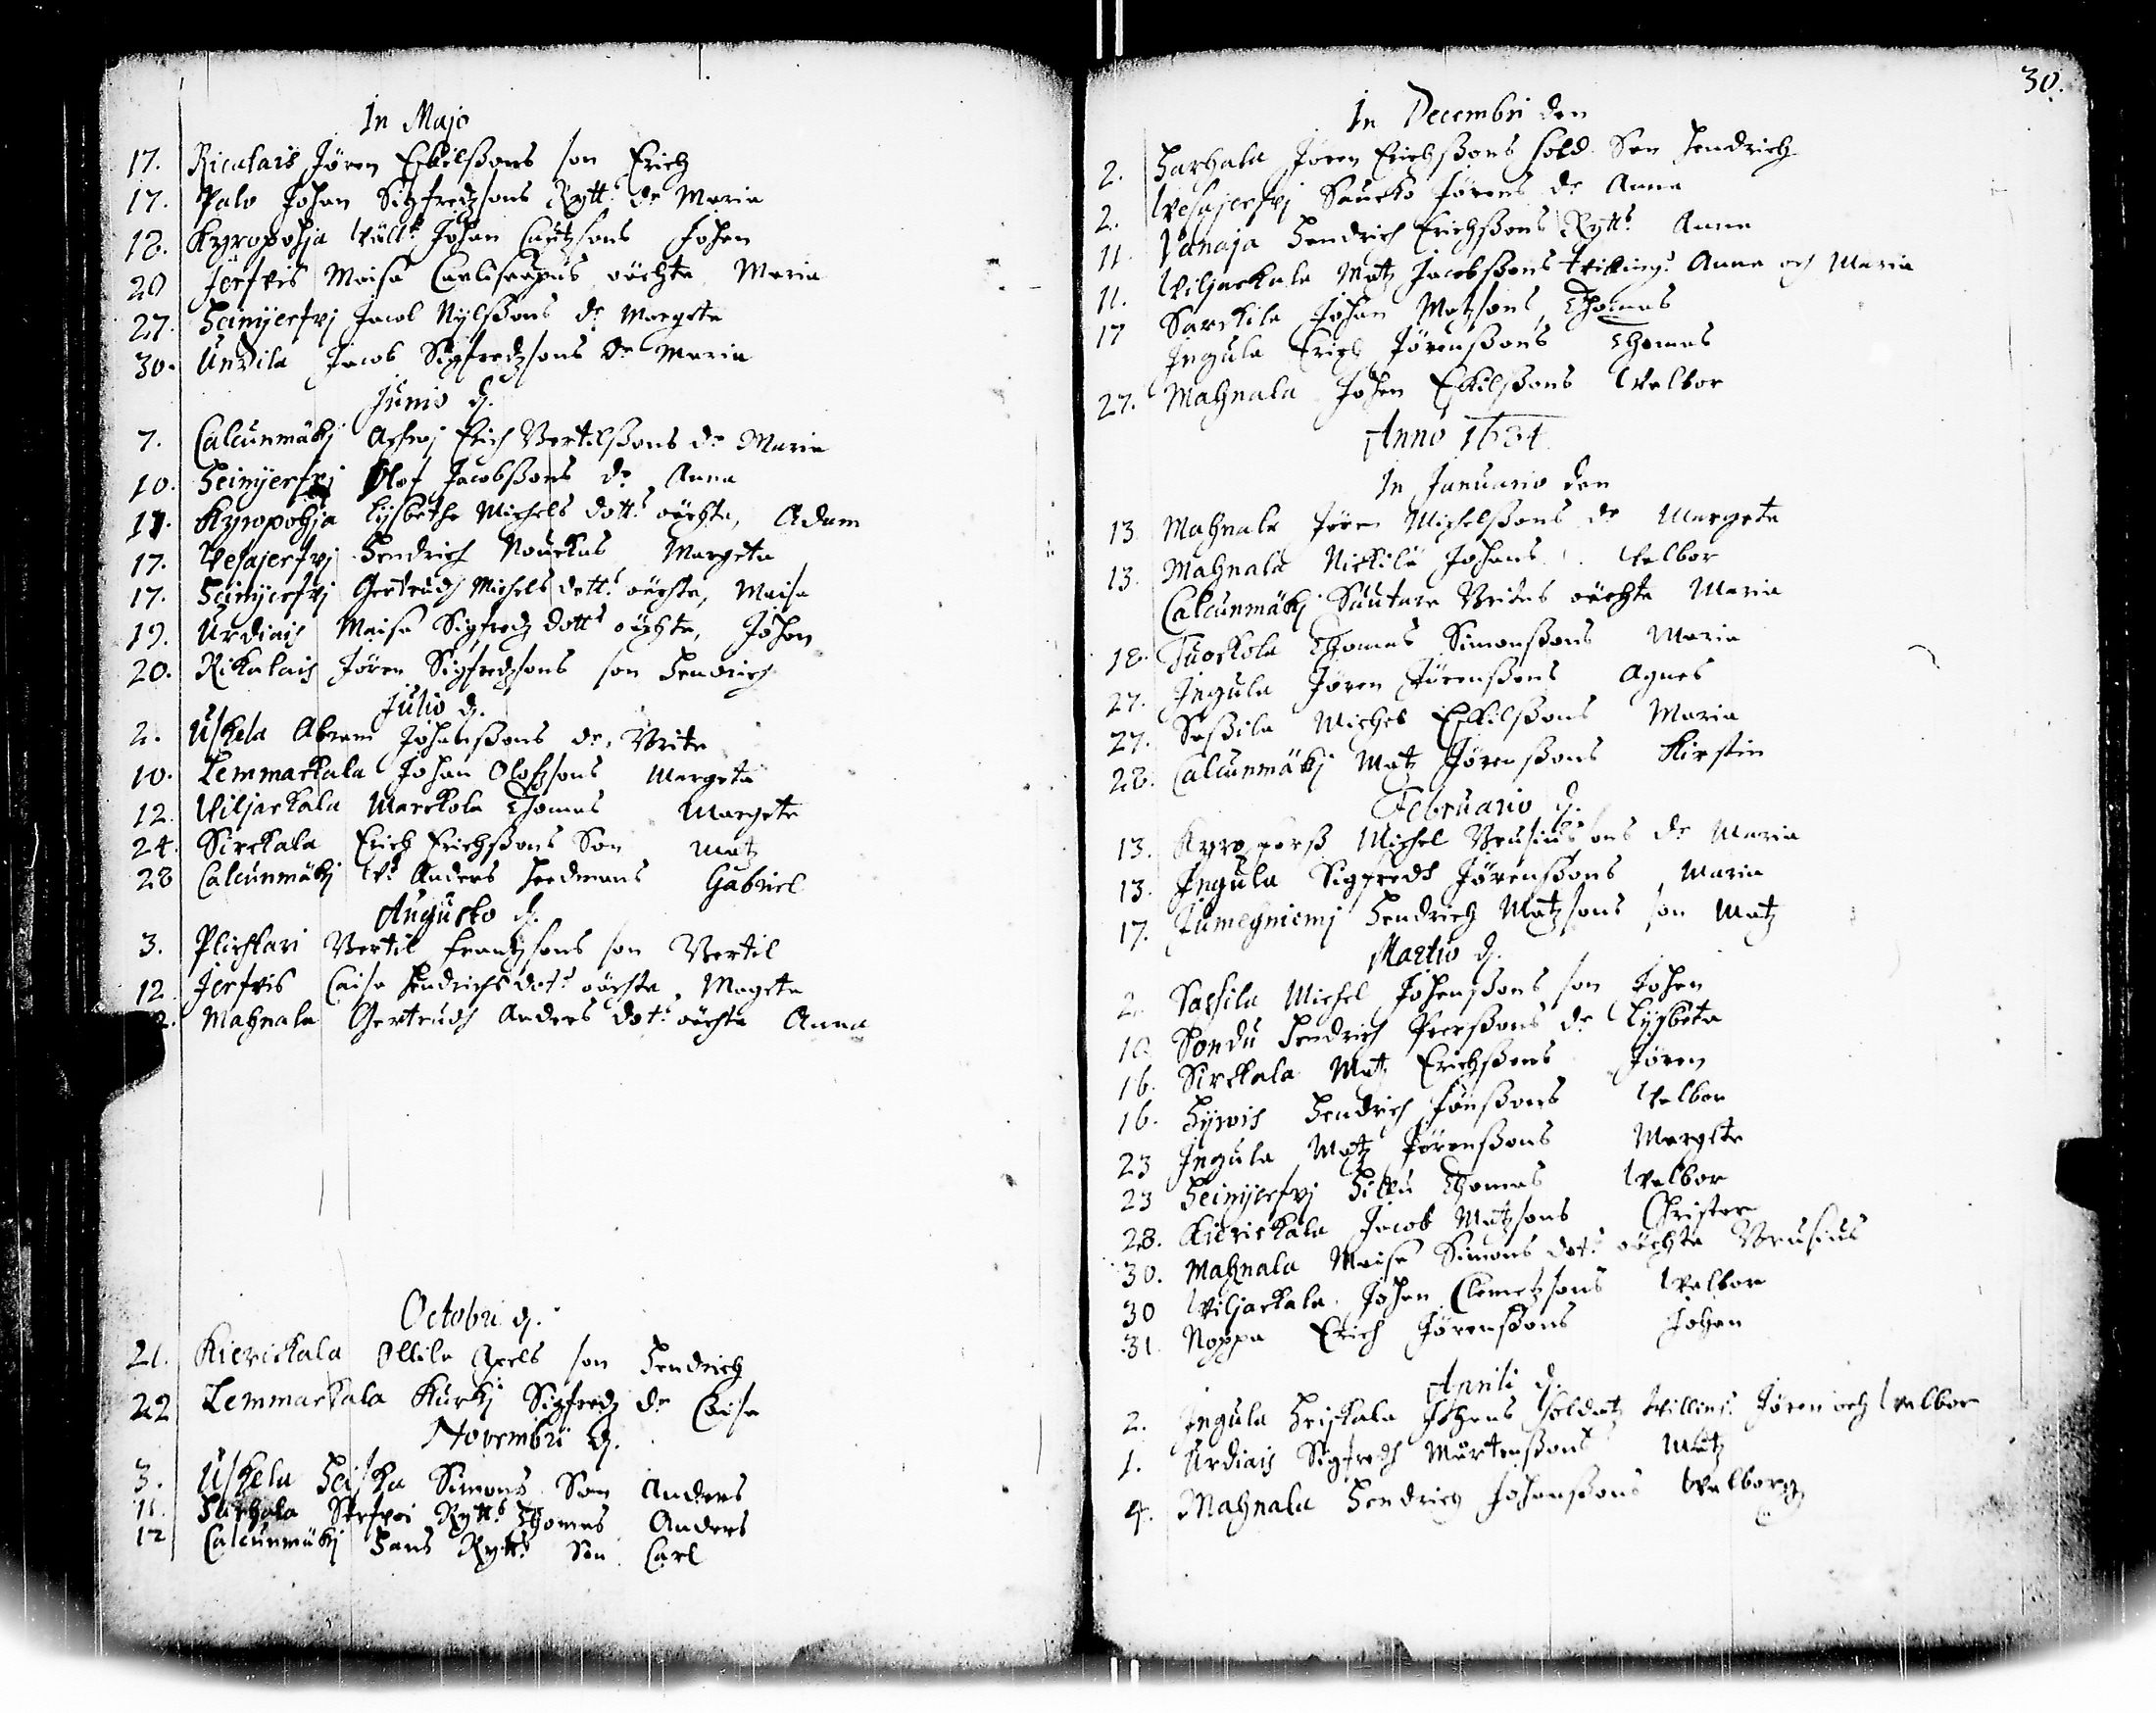 In Majo
17. Riculais Jören Eskilssons son Erich
17. Palo Johan Sigfredzsons Rytt: dr Maria
18. Kyropohja Johan Johan
20 Jerfvis Maisa oächta Maria
27. Heinijerfvj Jacob Nylssons dr Margeta
30. Unkila Jacob Sigfredzsons dr Maria
Junio d.
7. Calcunmäkj Erich Bertilssons dr Maria
10. Heinijerfvj Olof Jacobssons dr Anna
17. Kyropohja Lysbetha Michels dott: oächta, Adam
17. Vesajerfvj Hendrich Nouckas Margeta
17. Heinijerfvj Gertrudh Michels dott: oächta, Maisa
19. Urdiais Maisa Sigfredz dott: oächta, Johan
20. Rikalais Jören Sigfredzsons son Hendrich
Julio d.
2. Uskela Abram Johanssons dr. Brita
10. Lemmackala Johan Olofzsons Margeta
12. Viljackala Marckola Thomas Margeta
24. Sirckala Erich Erichssons Son Matz
28 Calcunmäkj Anders Heedmans Gabriel
Augusto d.
3. Plickari Bertil Frantzsons son Bertil
12. Jerfvis Caisa Hendrichs dot: oächta Mageta
2. Mahnala Gertrudh Anders dot: oächta Anna
Octobri d.
21. Kierickala Ollila Axels son Hendrich
22 Lemmackala Kurkj Sigfredz dr Caisa
Novembri d.
3. Uskela Heiska Simons Son Anders
11. Harhala Rytt: Thomas Anders
12 Calcunmäkj Hans Rytt: Son Carl
30.
In Decembri den
2. Harhala Jören Erichssons sold. Son Hendrich
2. Vesajerfvj Saucko Jörens dr Anna
11. Vanaja Hendrich Erichssons Rytt: Anna
11. Viljackala Matz Jacobssons tvilling: Anna och Maria
17 Sarckila Johan Matzsons Thomas
Ingula Erich Jörenssons Thomas
27. Mahnala Johan Eskilssons Valbor
Anno 1684
In Januario den
13. Mahnala Jören Michelssons dr Margeta
13. Mahnala Nickilä Johans Valbor
Calcunmäkj Suutare Britas oächta Maria
18. Tuockola Thomas Simonssons Maria
27. Ingula Jören Jörenssons Agnes
27. Sassila Michel Eskilssons Maria
28. Calcunmäkj Matz Jörenssons Kirstin
Februario d.
13. Kyroskors Michel Brusiussons dr Maria
13. Ingula Sigfredh Jörenssons Maria
17. Jumesniemj Hendrich Matzsons son Matz
Martio d.
2. Sassila Michel Johanssons son Johan
10. Sondu Hendrich Peerssons dr Lysbeta
16. Sirckala Matz Erichssons Jören
16. Hywis Hendrich Jönssons Valbor
23 Ingula Matz Jörenssons Margeta
23 Heinijerfvj Hillu Thomas Valbor
28. Kierickala Jacob Matzsons Christer
30. Mahnala Maisa Simons dot: oächta Brusius
30 Viljackala Johan Clemetzsons Valbor
31. Noppa Erich Jörenssons Johan
Aprili d.
2. Ingula Heiskala Johans soldatz tvilling: Jören och Valbor
1. Urdiais Sigfredh Mårtenssons Matz
4. Mahnala Hendrich Johanssons Valborg